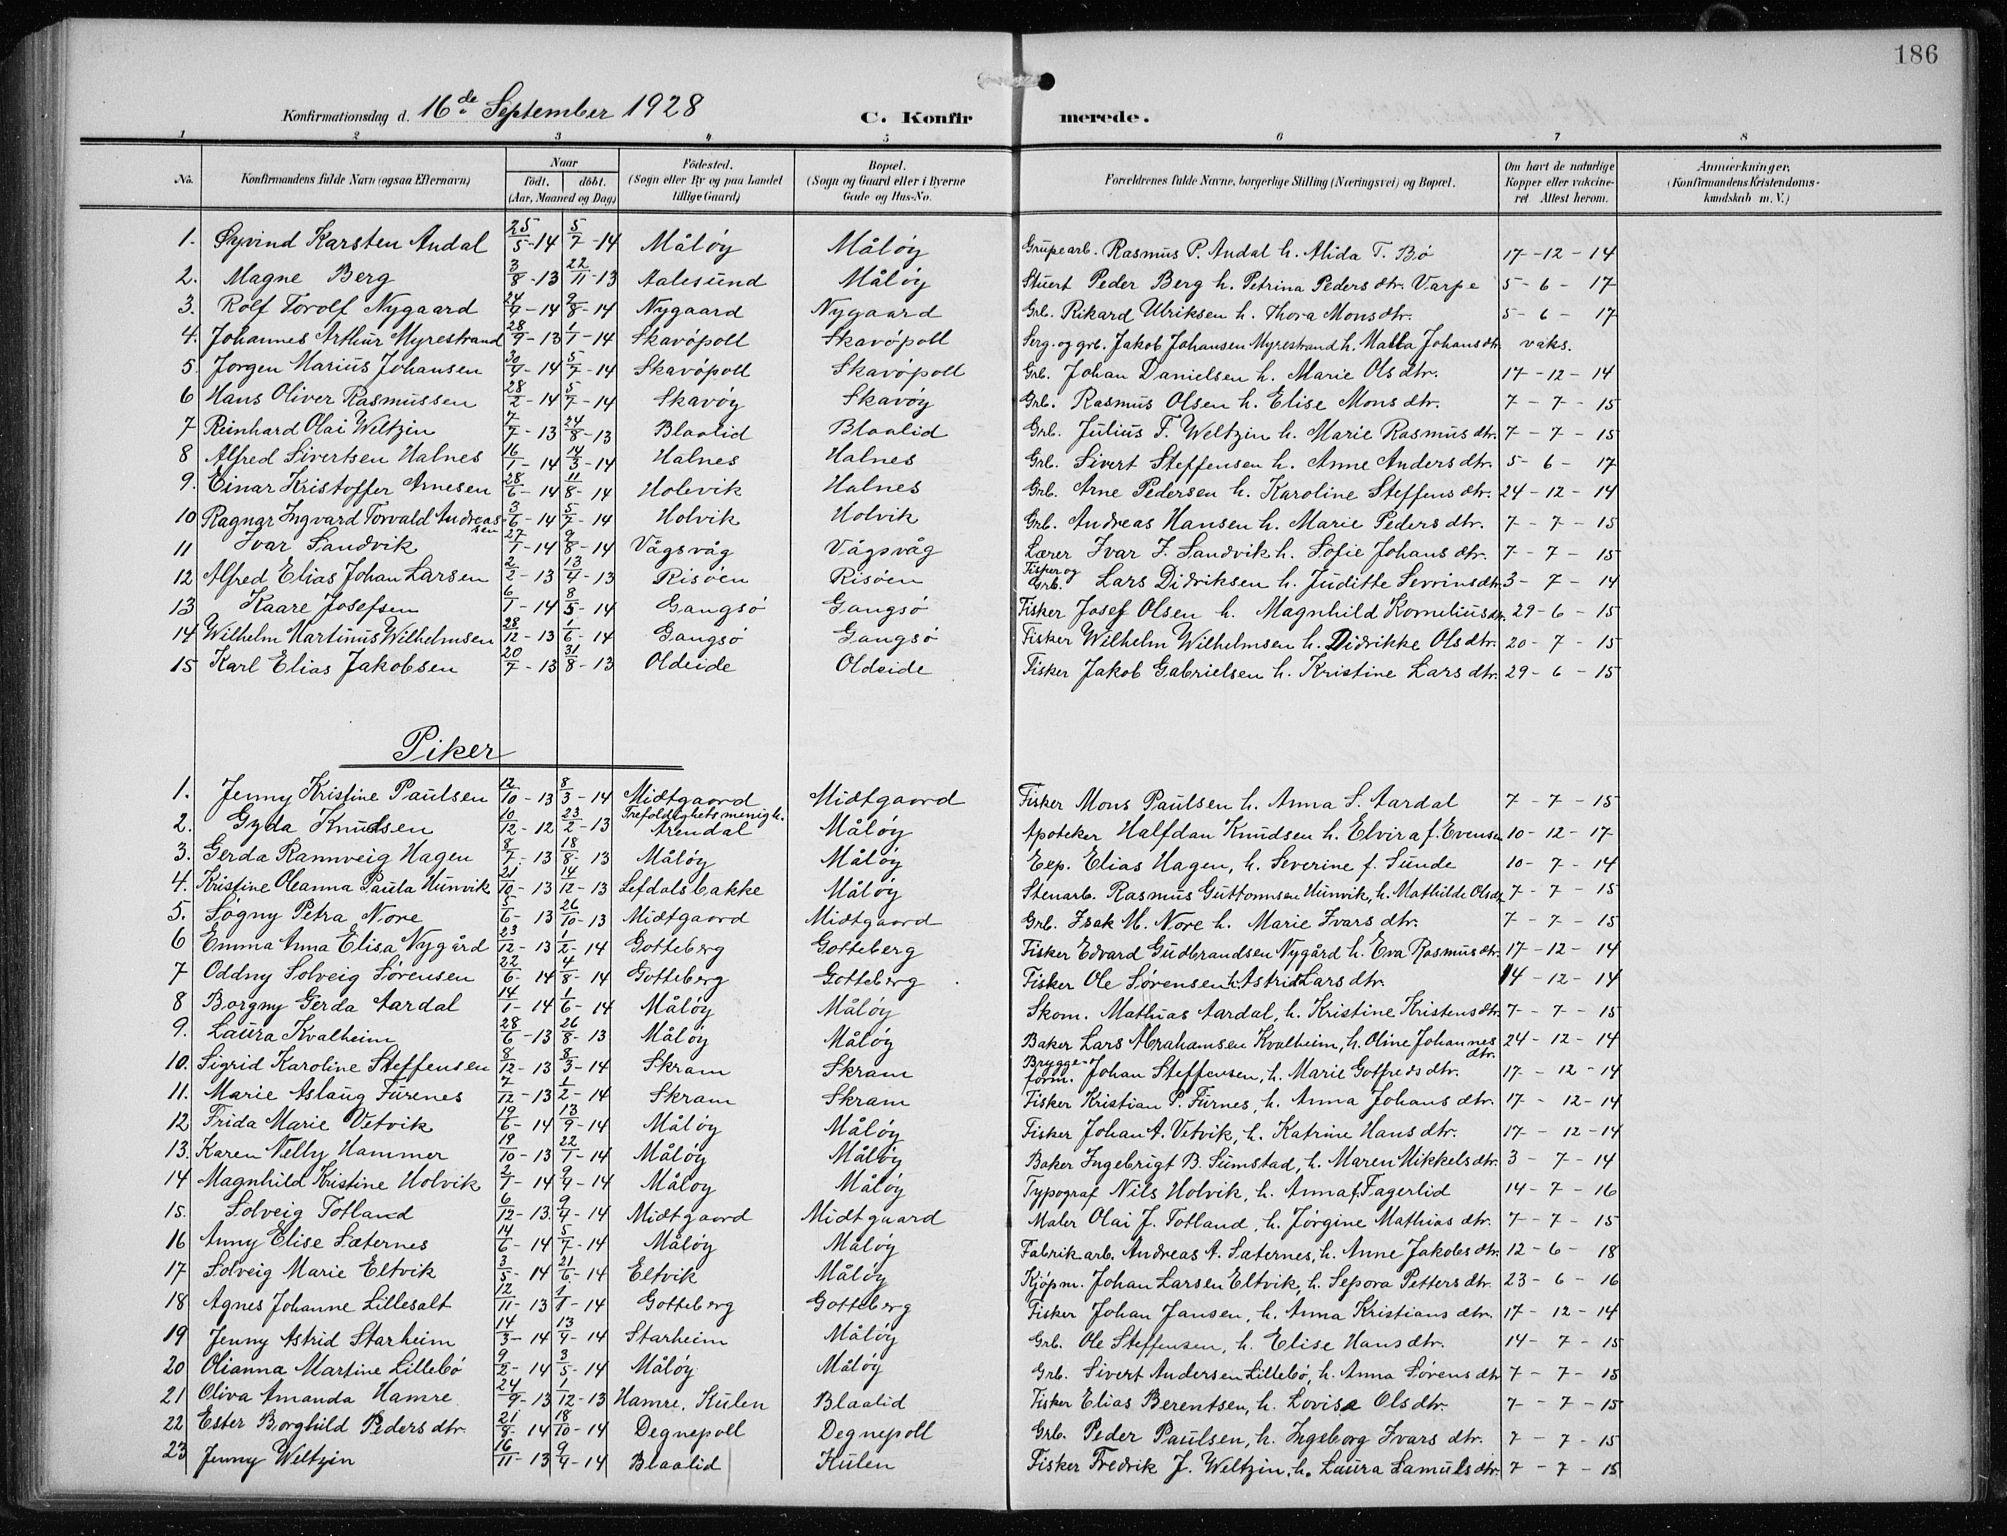 186
Konfirmationsdag d. 16de September 1928 C. Konfirmerede.
1 2 3 4 5 6 7 8
No. Konfirmandens fulde Navn (ogsaa Efternavn) Naar født. døbt. (Aar, Maaned og Dag) Fødested. (Sogn eller By og paa Landet tillige Gaard) Bopæl. (Sogn og Gaard eller i Byerne Gade og Hus-No. Forældrenes fulde Navne, borgerlige Stilling (Næringsvei) og Bopæl. Om havt de naturlige Kopper eller vakcineret Attest herom. Anmærkninger. (Konfirmandens Kristendomskundskab m. V.)
1. Øyvind Karsten Andal 25/5-14 5/7-14 Måløy Måløy Grupearb. Rasmus P. Andal h. Alida T. Bø 17-12-14
2. Magne Berg 3/8-13 22/11-13 Aalesund Måløy Stuert Peder Berg h. Petrina Pedersdtr. Varpe 5-6-17
3. Rolf Torolf Nygaard 24/4-14 9/8-14 Nygaard Nygaard Grb. Rikard Ulriksen h. Thora Monsdtr. 5-6-17
4. Johannes Arthur Myrestrand 28/9-13 1/1-14 Skavøpoll Skavøpoll Serg. og grb. Jakob Johansen Myrestrand h. Matla Johansdtr. vaks.
5. Jørgen Marius Johansen 30/4-14 5/7-14 Skavøpoll Skavøpoll Grb. Johan Danielsen h. Marie Olsdtr. 17-12-14
6 Hans Oliver Rasmussen 28/2-14 5/7-14 Skavøy Skavøy Grb. Rasmus Olsen h. Elise Monsdtr. 7-7-15
7 Reinhard Olai Weltzin 7/7-13 24/8-13 Blaalid Blaalid Grb. Julius F. Weltzin h. Marie Rasmusdtr. 7-7-15
8 Alfred Sivertsen Halnes 16/1-14 14/3-14 Halnes Halnes Grb. Sivert Steffensen h. Anne Andersdtr. 5-6-17
9. Einar Kristoffer Arnesen 28/6-14 11/8-14 Holevik Halnes Grb. Arne Pedersen h. Karoline Steffensdtr. 24-12-14
10 Ragnar Ingvard Torvald Andreassen 3/6-14 5/7-14 Holvik Holvik Grb. Andreas Hansen h. Marie Pedersdtr. 7-7-15
11 Ivar Sandvik 27/1-14 9/8-14 Vågsvåg Vågsvåg Lærer Ivar J. Sandvik h. Sofie Johansdtr. 7-7-15
12 Alfred Elias Johan Larsen 2/2-13 13/4-13 Risøen Risøen Fisker og Grb. Lars Didriksen h. Juditte Sevrinsdtr. 3-7-14
13 Kaare Josefsen 6/1-14 8/5-14 Gangsø Gangsø Fisker Josef Olsen h. Magnhild Korneliusdtr. 29-6-15
14 Wilhelm Martinus Wilhelmsen 28/12-13 1/6-14 Gangsø Gangsø Fisker Wilhelm Wilhelmsen h. Didrikke Olsdtr. 20-7-15
15 Karl Elias Jakobsen 20/7-13 31/8-13 Oldeide Oldeide Fisker Jakob Gabrielsen h. Kristine Larsdtr. 29-6-15
Piker
1. Jenny Kristine Paulsen 12/10-13 8/3-14 Midtgaard Midtgaard Fisker Mons Paulsen h. Anna S. Aardal 7-7-15
2. Gyda Knudsen 10/12-12 23/2-13 Trefoldighetsmenigh. Arendal Måløy Apoteker Halfdan Knudsen h. Elvira f. Evensen 10-12-17
3. Gerda Rannveig Hagen 8/7-13 18/8-13 Måløy Måløy Exp. Elias Hagen, h. Severine f. Sunde 10-7-14
4. Kristine Oleanna Paula Hunvik 21/10-13 14/12-13 Lefdalsbakke Måløy Stenarb. Rasmus Guttormsen Hunvik, h. Mathilde Olsdtr 7-7-15
5. Søgny Petra Nore 5/6-13 26/10-13 Midtgaard Midtgaard Grb. Isak M. Nore h. Marie Ivarsdtr. 7-7-15
6 Emma Anna Elisa Nygård 23/12-13 1/2-14 Gotteberg Gotteberg Fisker Edvard Gudbrandsen Nygård h. Eva Rasmusdtr. 17-12-14
7 Oddny Solveig Sørensen 22/6-14 4/8-14 Gotteberg Gotteberg Fisker Ole Sørensen h. Astrid Larsdtr. 14-12-14
8 Borgny Gerda Aardal 14/1-14 1/6-14 Måløy Måløy Skom. Mathias Aardal, h. Kristine Kristensdtr. 7-7-15
9. Laura Kvalheim 28/6-13 26/8-13 Måløy Måløy Baker Lars Abrahamsen Kvalheim, h. Oline Johannesdtr. 24-12-14
10. Sigrid Karoline Steffensen 8/12-13 8/3-14 Skram Skram Bryggeform. Johan Steffensen, h. Marie Gotfredsdtr. 17-12-14
11. Marie Aslaug Furenes 7/12-13 1/2-14 Skram Skram Fisker Kristian P. Furnes, h. Anna Johansdtr. 17-12-14
12 Frida Marie Vetvik 19/6-14 13/9-14 Måløy Måløy Fisker Johan A. Vetvik, h. Katrine Hansdtr. 17-12-14
13. Karen Nelly Hammer 19/10-13 22/1-14 Måløy Måløy Baker Ingebrigt B. Sumstad, h. Maren Mikkelsdtr. 3-7-14
14 Magnhild Kristine Holvik 2/1-14 9/4-14 Måløy Måløy Typograf Nils Holvik, h. Anna f. Fagerlid 14-7-16
15. Solveig Totland 6/12-13. 9/4-14 Midtgaard Midtgaard Maler Olai J. Totland, h. Jørgine Mathiasdtr. 7-7-15
16 Anny Elise Sæternes 14/6-14 5/7-14 Måløy Måløy Fabrikarb. Andreas A. Sæternes, h. Anne Jakobsdtr. 12-6-18
17 Solveig Marie Eltvik 3/5-14 21/6-14 Eltvik Måløy Kjøpm. Johan Larsen Eltvik, h. Sepora Pettersdtr. 23-6-16
18 Agnes Johanne Lillesalt 12/11-13 1/1-14 Gotteberg Gotteberg Fisker Johan Jansen, h. Anna Kristiansdtr. 17-12-14
19 Jenny Astrid Starheim 14/3-14 13/4-14 Starheim Måløy Grb. Ole Steffensen, h. Elise Hansdtr. 14-7-15
20 Olianna Martine Lillebø 9/2-14 3/5-14 Måløy Måløy Grb. Sivert Andersen Lillebø, h. Anna Sørensdtr 7-7-15
21 Oliva Amanda Hamre 24/9-13 1/12-13 Hamre, Hulen Blaalid Fisker Elias Berentsen, h. Lovise Olsdtr. 7-7-15
22 Ester Borghild Pedersdtr. 21/8-14 18/10-14 Degnepoll Degnepoll Grb. Peder Paulsen, h. Ingeborg Ivarsdtr. 7-7-15
23 Jenny Weltzin 16/11-13 9/4-14 Blaalid Hulen Fisker Fredrik J. Weltzin, h. Laura Samulsdtr. 7-7-15